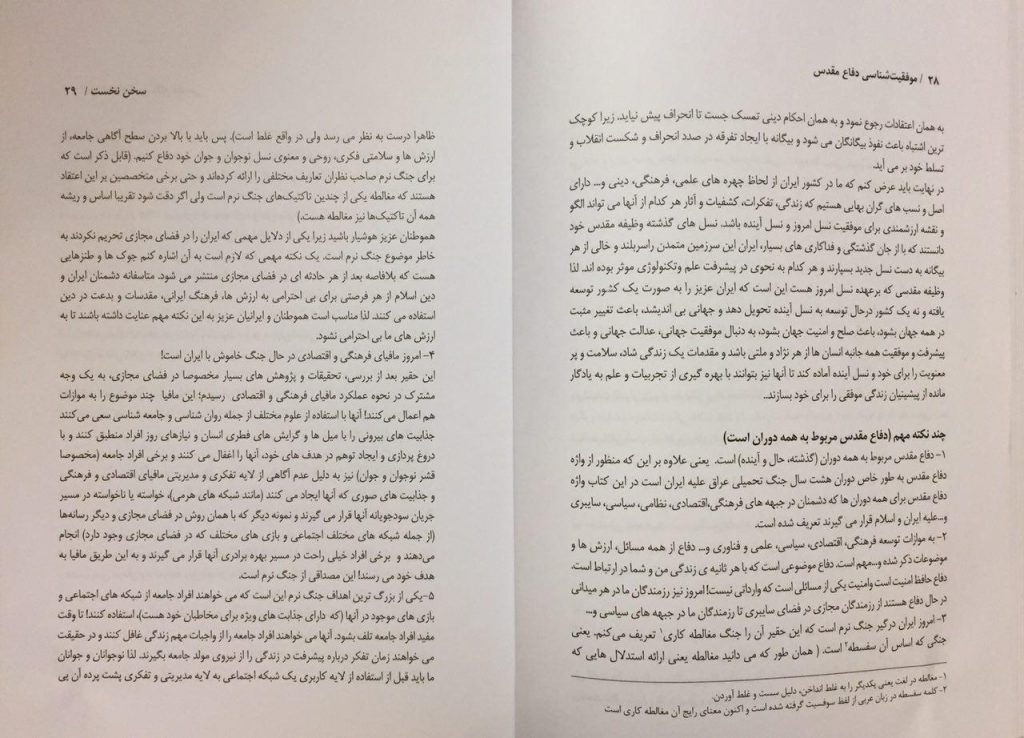 ۲۸ / موفقیت‌شناسی دفاع مقدس
به همان اعتقادات رجوع نمود و به همان احکام دینی تمسک جست تا انحراف پیش نیاید. زیرا کوچک
ترین اشتباه باعث نفوذ بیگانگان می شود و بیگانه با ایجاد تفرقه در صدد انحراف و شکست انقلاب و
تسلط خود بر می آید.
در نهایت باید عرض کنم که ما در کشور ایران از لحاظ چهره های علمی، فرهنگی، دینی و... دارای
اصل و نسب های گران بهایی هستیم که زندگی، تفکرات، کشفیات و آثار هر کدام از آنها می تواند الگو
و نقشه ارزشمندی برای موفقیت نسل امروز و نسل آینده باشد. نسل های گذشته وظیفه مقدس خود
دانستند که با از جان گذشتگی و فداکاری های بسیار، ایران این سرزمین متمدن راسربلند و خالی از هر
بیگانه به دست نسل جدید بسپارند و هر کدام به نحوی در پیشرفت علم وتکنولوژی موثر بوده اند. لذا
وظیفه مقدسی که برعهده نسل امروز هست این است که ایران عزیز را به صورت یک کشور توسعه
یافته و نه یک کشور درحال توسعه به نسل آینده تحویل دهد و جهانی بی اندیشد، باعث تغییر مثبت
در همه جهان بشود، باعث صلح و امنیت جهان بشود، به دنبال موفقیت جهانی، عدالت جهانی و باعث
پیشرفت و موفقیت همه جانبه انسان ها از هر نژاد و ملتی باشد و مقدمات یک زندگی شاد، سلامت و پر
معنویت را برای خود و نسل آینده آماده کند تا آنها نیز بتوانند با بهره گیری از تجربیات و علم به یادگار
مانده از پیشینیان زندگی موفقی را برای خود بسازند..
چند نکته مهم (دفاع مقدس مربوط به همه دوران است)
۱- دفاع مقدس مربوط به همه دوران (گذشته، حال و آینده) است. یعنی علاوه بر این که منظور از واژه
دفاع مقدس به طور خاص دوران هشت سال جنگ تحمیلی عراق علیه ایران است در این کتاب واژه
دفاع مقدس برای همه دوران ها که دشمنان در جبهه های فرهنگی،اقتصادی، نظامی، سیاسی، سایبری
و...علیه ایران و اسلام قرار می گیرند تعریف شده است.
۲- به موازات توسعه فرهنگی، اقتصادی، سیاسی، علمی و فناوری و... دفاع از همه مسائل، ارزش ها و
موضوعات ذکر شده و...مهم است. دفاع موضوعی است که با هر ثانیه ی زندگی من و شما در ارتباط است.
دفاع حافظ امنیت است وامنیت یکی از مسائلی است که وارداتی نیست! امروز نیز رزمندگان ما در هر میدانی
در حال دفاع هستند از رزمندگان مجازی در فضای سایبری تا رزمندگان ما در جبهه های سیاسی و...
۳- امروز ایران درگیر جنگ نرم است که این حقیر آن را جنگ مغالطه کاری۱ تعریف می‌کنم. یعنی
جنگی که اساس آن سفسطه۲ است. ( همان طور که می دانید مغالطه یعنی ارائه استدلال هایی که
۱- مغالطه در لغت یعنی یکدیگر را به غلط انداختن، دلیل سست و غلط آوردن.
۲- کلمه سفسطه در زبان عربی از لفظ سوفسیت گرفته شده است و اکنون معنای رایج آن مغالطه کاری است
سخن نخست / ۲۹
ظاهرا درست به نظر می رسد ولی در واقع غلط است). پس باید با بالا بردن سطح آگاهی جامعه، از
ارزش ها و سلامتی فکری، روحی و معنوی نسل نوجوان و جوان خود دفاع کنیم. (قابل ذکر است که
برای جنگ نرم صاحب نظران تعاریف مختلفی را ارائه کرده‌اند و حتی برخی متخصصین بر این اعتقاد
هستند که مغالطه یکی از چندین تاکتیک‌های جنگ نرم است ولی اگر دقت شود تقریبا اساس و ریشه
همه آن تاکتیک‌ها نیز مغالطه هست.)
هموطنان عزیز هوشیار باشید زیرا یکی از دلایل مهمی که ایران را در فضای مجازی تحریم نکردند به
خاطر موضوع جنگ نرم است. یک نکته مهمی که لازم است به آن اشاره کنم جوک ها و طنزهایی
هست که بلافاصه بعد از هر حادثه ای در فضای مجازی منتشر می شود. متاسفانه دشمنان ایران و
دین اسلام از هر فرصتی برای بی احترامی به ارزش ها، فرهنگ ایرانی، مقدسات و بدعت در دین
استفاده می کنند. لذا مناسب است هموطنان و ایرانیان عزیز به این نکته مهم عنایت داشته باشند تا به
ارزش های ما بی احترامی نشود.
۴- امروز مافیای فرهنگی و اقتصادی در حال جنگ خاموش با ایران است!
این حقیر بعد از بررسی، تحقیقات و پژوهش های بسیار مخصوصا در فضای مجازی، به یک وجه
مشترک در نحوه عملکرد مافیای فرهنگی و اقتصادی رسیدم؛ این مافیا چند موضوع را به موازات
هم اعمال می‌کنند! آنها با استفاده از علوم مختلف از جمله روان شناسی و جامعه شناسی سعی می‌کنند
جذابیت های بیرونی را با میل ها و گرایش های فطری انسان و نیازهای روز افراد منطبق کنند و با
دروغ پردازی و ایجاد توهم در هدف های خود، آنها را اغفال می کنند و برخی افراد جامعه (مخصوصا
قشر نوجوان و جوان) نیز به دلیل عدم آگاهی از لایه تفکری و مدیریتی مافیای اقتصادی و فرهنگی
و جذابیت های صوری که آنها ایجاد می کنند (مانند شبکه های هرمی)، خواسته یا ناخواسته در مسیر
جریان سودجویانه آنها قرار می گیرند و نمونه دیگر که با همان روش در فضای مجازی و دیگر رسانه‌ها
(از جمله شبکه های مختلف اجتماعی و بازی های مختلف که در فضای مجازی وجود دارد) انجام
می‌دهند و برخی افراد خیلی راحت در مسیر بهره برادری آنها قرار می گیرند و به این طریق مافیا به
هدف خود می رسند! این مصداقی از جنگ نرم است.
۵-یکی از بزرگ ترین اهداف جنگ نرم این است که می خواهند افراد جامعه از شبکه های اجتماعی و
بازی های موجود در آنها (که دارای جذابت های ویژه برای مخاطبان خود هست)، استفاده کنند! تا وقت
مفید افراد جامعه تلف بشود. آنها می خواهند افراد جامعه را از واجبات مهم زندگی غافل کنند و در حقیقت
می خواهند زمان تفکر درباره پیشرفت در زندگی را از نیروی مولد جامعه بگیرند. لذا نوجوانان و جوانان
ما باید قبل از استفاده از لایه کاربری یک شبکه اجتماعی به لایه مدیریتی و تفکری پشت پرده آن پی